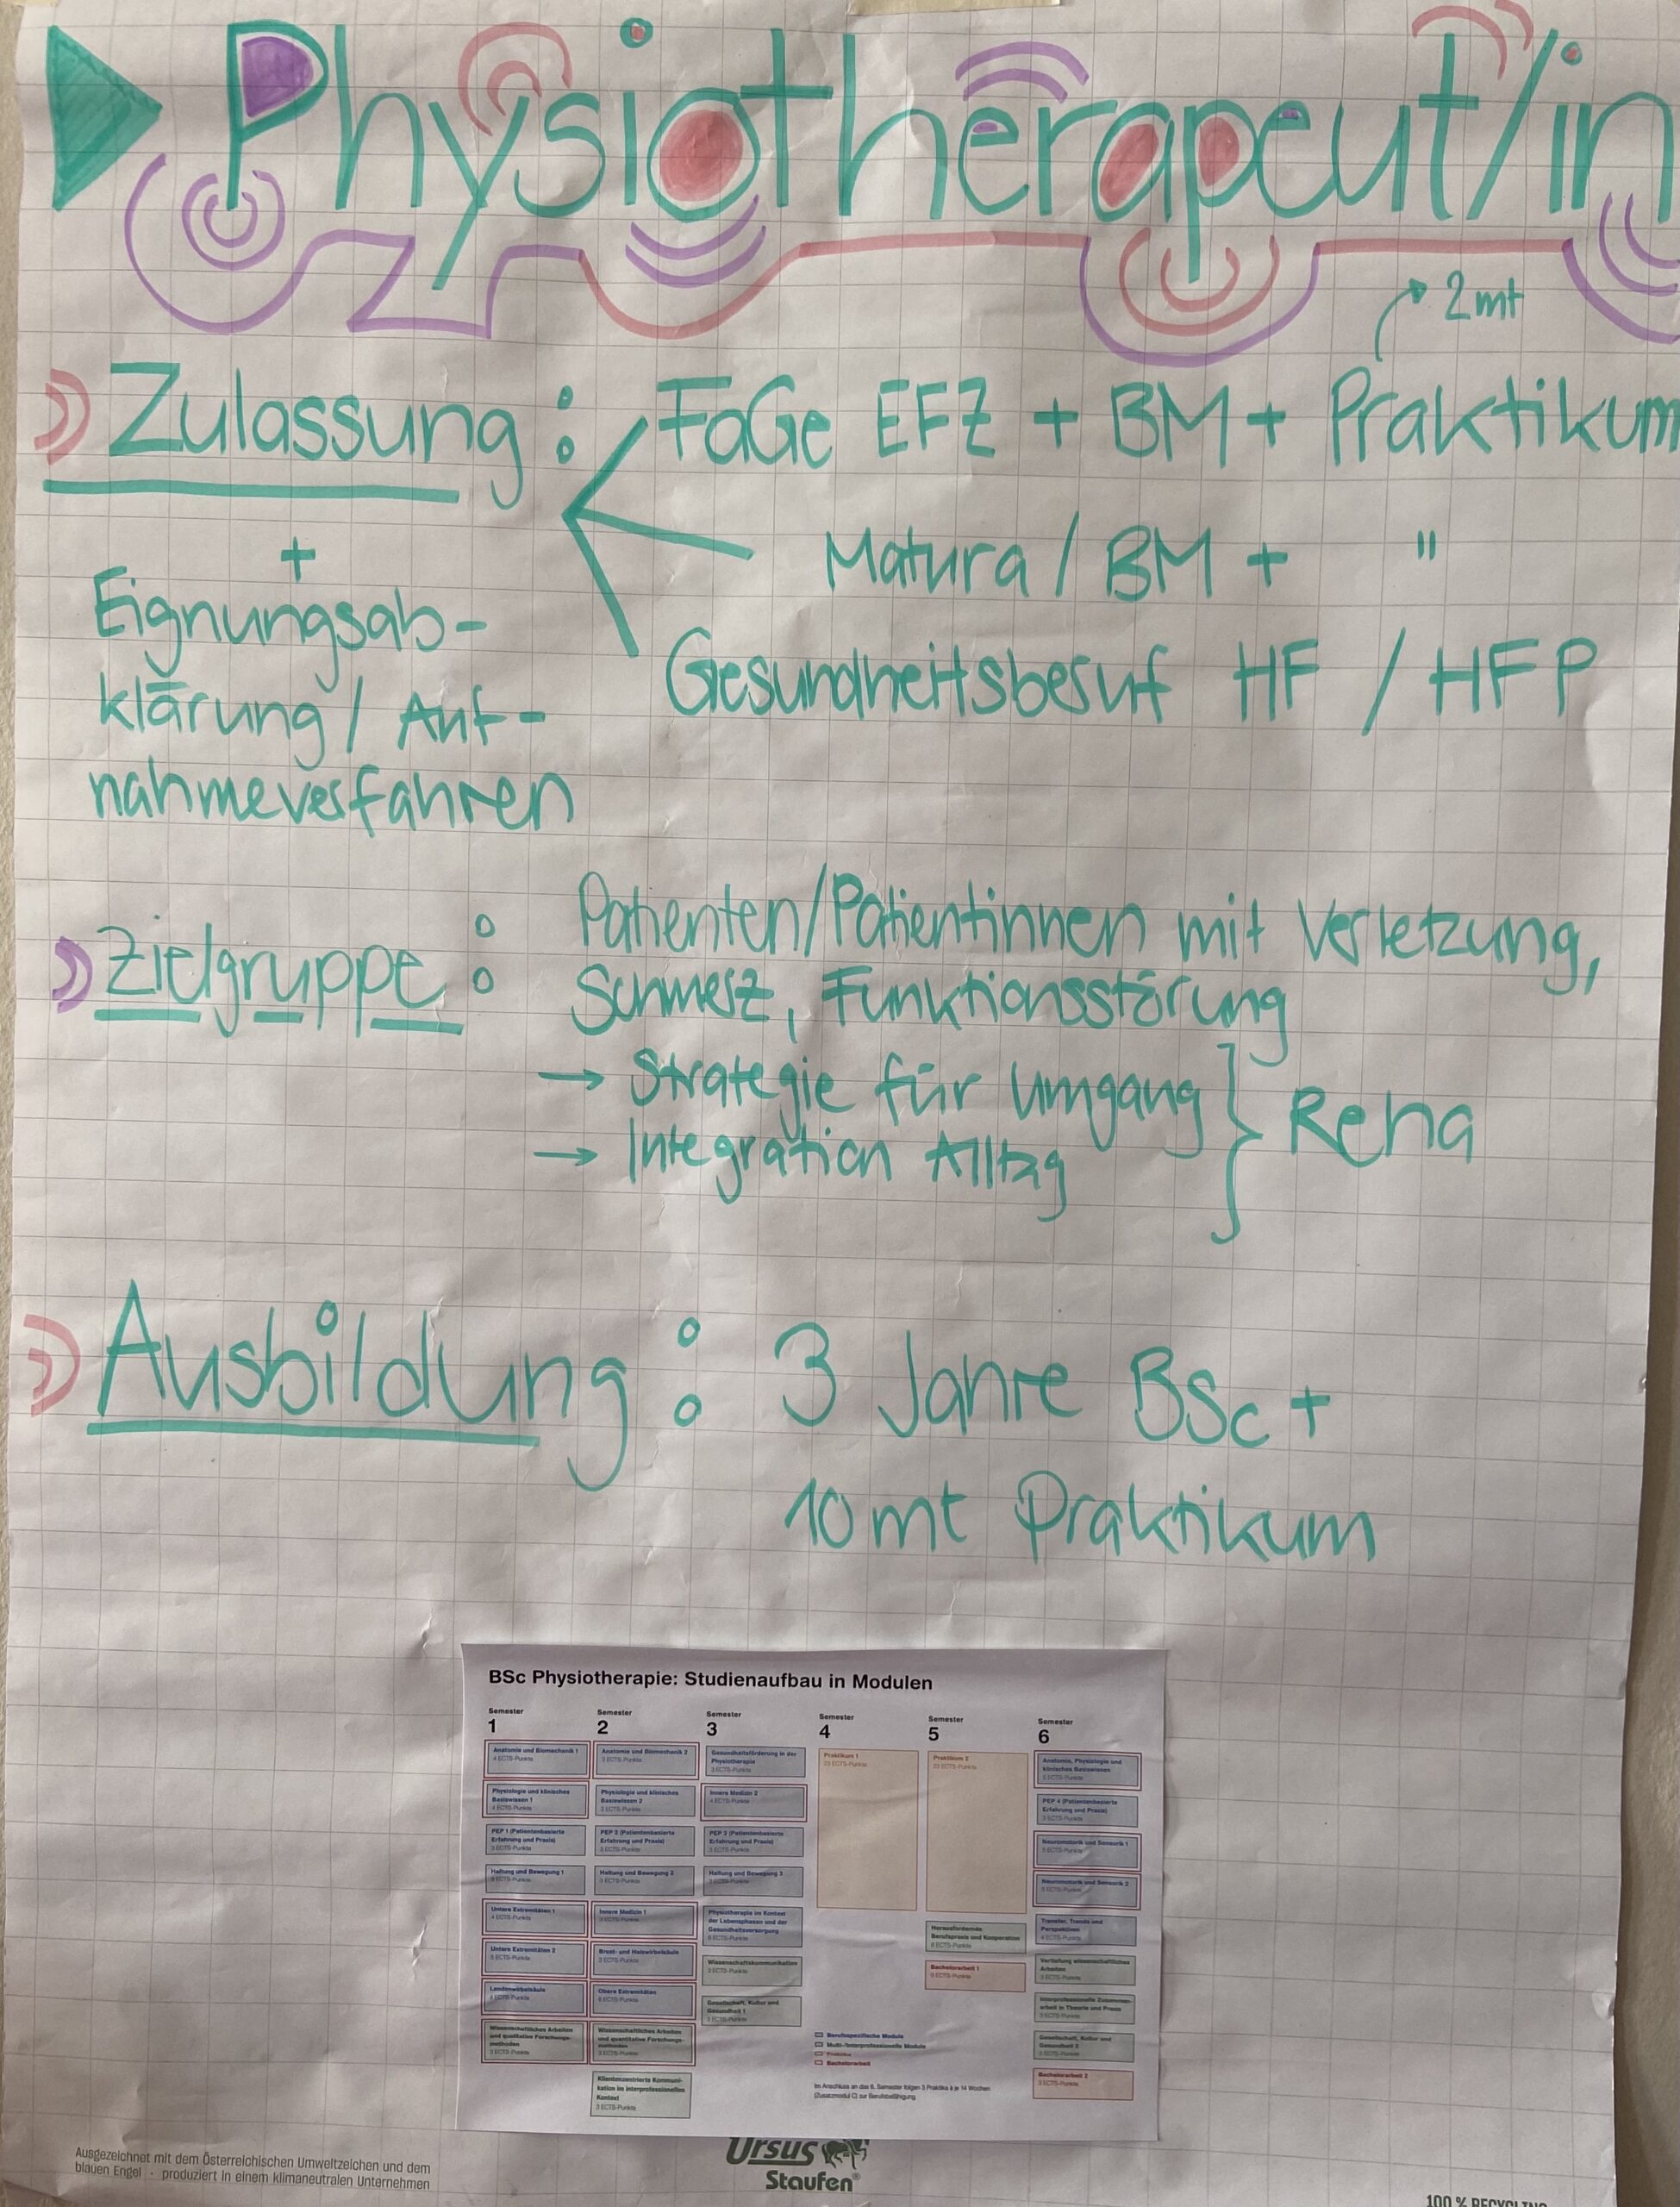 Physiotherapeut/in
2mt
Zulassung : FaGe EFZ + BM + Praktikum
Matura / BM + "
Gesundheitsberuf HF / HFP
+
Eignungsab-
klärung / Auf-
nahmeverfahren
Zielgruppe : Patienten/Patientinnen mit Verletzung,
Schmerz, Funktionsstörung
→ Strategie für Umgang
→ Integration Alltag
} Reha
Ausbildung : 3 Jahre BSc +
10 mt Praktikum
BSc Physiotherapie: Studienaufbau in Modulen
Semester
1
Anatomie und Biomechanik 1
4 ECTS-Punkte
Physiologie und klinisches
Basiswissen 1
4 ECTS-Punkte
PEP 1 (Patientenbasierte
Erfahrung und Praxis)
ECTS-Punkte
Haltung und Bewegung 1
ECTS-Punkte
Untere Extremitäten 1
4 ECTS-Punkte
Untere Extremitäten 2
ECTS-Punkte
Lendenwirbelsäule
ECTS-Punkte
Wissenschaftliches Arbeiten
und qualitative Forschungs-
methoden
ECTS-Punkte
Semester
2
Anatomie und Biomechanik 2
ECTS-Punkte
Physiologie und klinisches
Basiswissen 2
ECTS-Punkte
PEP 2 (Patientenbasierte
Erfahrung und Praxis)
ECTS-Punkte
Haltung und Bewegung 2
ECTS-Punkte
Innere Medizin 1
ECTS-Punkte
Brust- und Halswirbelsäule
ECTS-Punkte
Obere Extremitäten
ECTS-Punkte
Wissenschaftliches Arbeiten
und quantitative Forschungs-
methoden
ECTS-Punkte
Klientenzentrierte Kommuni-
kation im interprofessionellen
Kontext
3 ECTS-Punkte
Semester
3
Gesundheitsförderung in der
Physiotherapie
ECTS-Punkte
Innere Medizin 2
ECTS-Punkte
PEP 3 (Patientenbasierte
Erfahrung und Praxis)
ECTS-Punkte
Haltung und Bewegung 3
ECTS-Punkte
Physiotherapie im Kontext
der Lebensphasen und der
Gesundheitsversorgung
ECTS-Punkte
Wissenschaftskommunikation
ECTS-Punkte
Gesellschaft, Kultur und
Gesundheit 1
ECTS-Punkte
Semester
4
Praktikum 1
ECTS-Punkte
Semester
5
Praktikum 2
ECTS-Punkte
Herausfordernde
Berufspraxis und Kooperation
ECTS-Punkte
Bachelorarbeit 1
ECTS-Punkte
Semester
6
Anatomie, Physiologie und
klinisches Basiswissen
ECTS-Punkte
PEP 4 (Patientenbasierte
Erfahrung und Praxis)
ECTS-Punkte
Neuromotorik und Sensorik 1
ECTS-Punkte
Neuromotorik und Sensorik 2
ECTS-Punkte
Transfer, Trends und
Perspektiven
ECTS-Punkte
Vertiefung wissenschaftliches
Arbeiten
ECTS-Punkte
Interprofessionelle Zusammen-
arbeit in Theorie und Praxis
ECTS-Punkte
Gesellschaft, Kultur und
Gesundheit 2
ECTS-Punkte
Bachelorarbeit 2
ECTS-Punkte
Berufsspezifische Module
Multi-/Interprofessionelle Module
Praktika
Bachelorarbeit
Im Anschluss an das 6. Semester folgen 3 Praktika à je 14 Wochen
(Zusatzmodul C) zur Berufsbefähigung.
Ausgezeichnet mit dem Österreichischen Umweltzeichen und dem
blauen Engel · produziert in einem klimaneutralen Unternehmen
Ursus
Staufen®
100 %